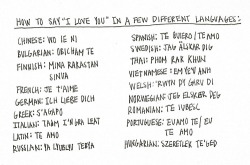 HOW TO SAY "I LOVE YOU" IN A FEW DIFFERENT LANGUAGES:
CHINESE: WO IE NI
BULGARIAN: OBICHAM TE
FINNISH: MINA RAKASTAN
SINUA
FRENCH: JE T'AIME
GERMAN: ICH LIEBE DICH
GREEK: S'AGAPO
ITALIAN: TAIM I'NGRA LEAT
LATIN: TE AMO
RUSSIAN: YA LYUBLYU TEBYA
SPANISH: TE QUIERO / TE AMO
SWEDISH: JAG ÄLSKAR DIG
THAI: PHOM RAK KHUN
VIETNAMESE: EM YÊU ANH
WELSH: 'RWYN DY GARU DI
NORWEGIAN: JEG ELSKER DEG
ROMANIAN: TE IUBESC
PORTUGUESE: EU AMO TE / EU
TE AMO
HUNGARIAN: SZERETLEK TE'GED